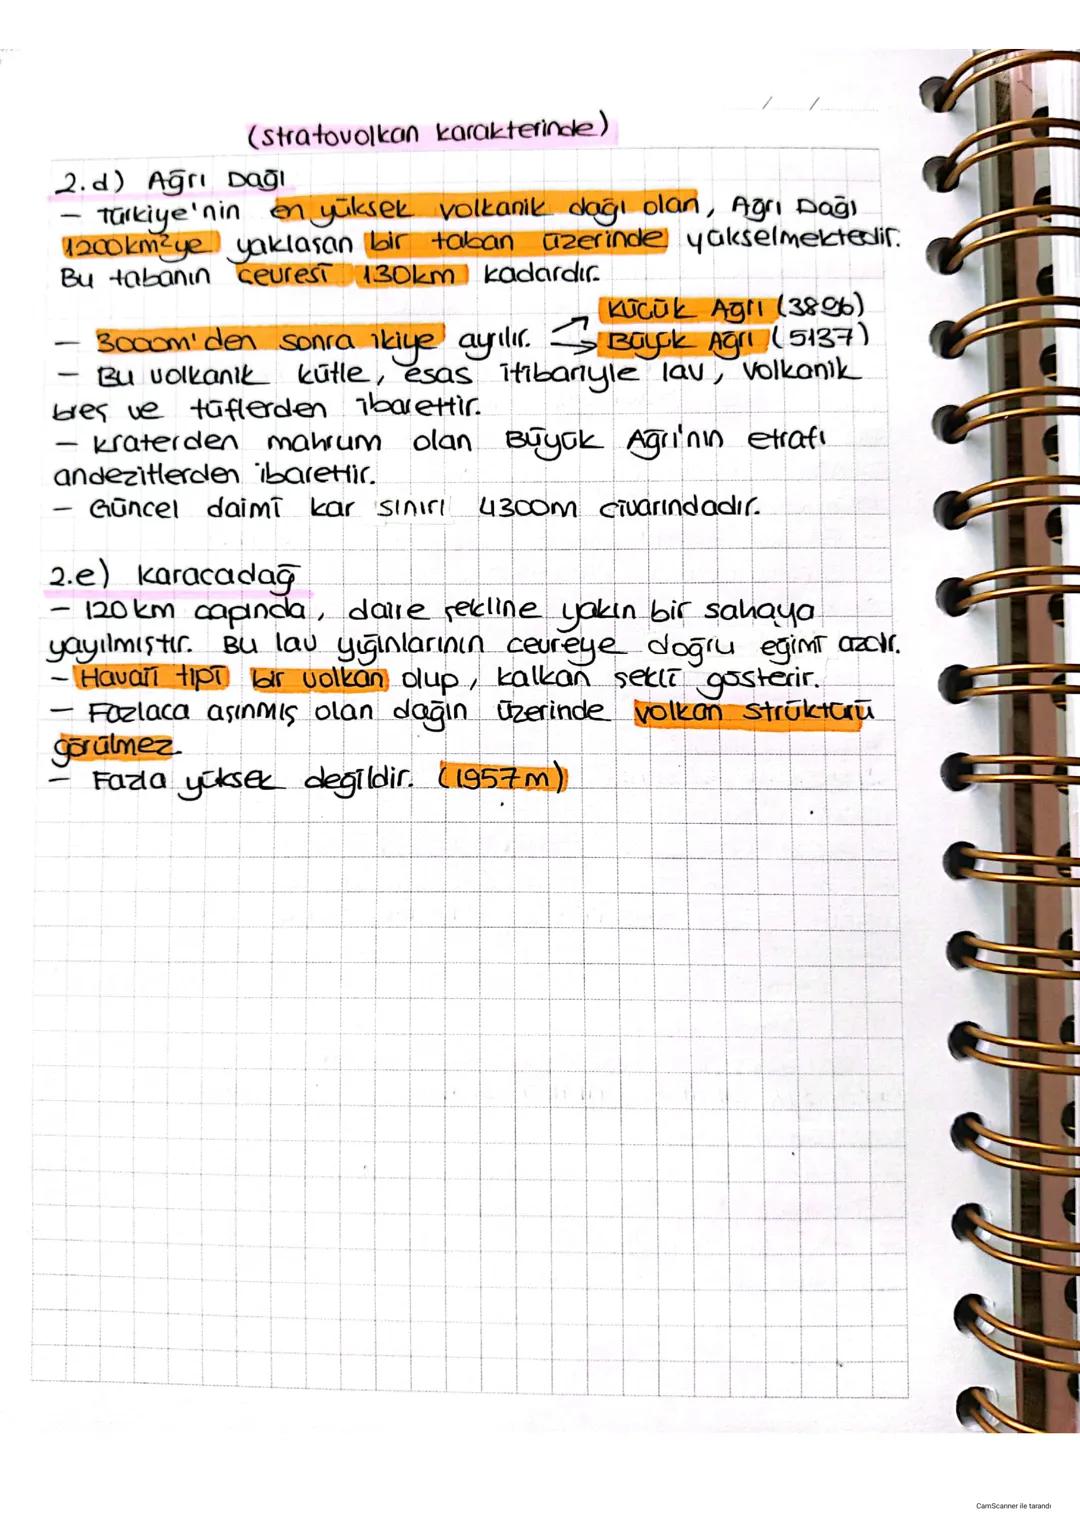 / /
(stratovolkan karakterinde)
2.d) Ağrı Dağı
- Türkiye'nin en yüksek volkanik dağı olan, Ağrı Dağı
1200km²ye yaklaşan bir taban üzerinde yükselmektedir.
Bu tabanın çevresi 130km kadardır.
Küçük Ağrı (3896)
- 3000m'den sonra ikiye ayrılır. Büyük Ağrı (5137)
- Bu volkanik kütle, esas itibariyle lav, volkanik
breş ve tüflerden ibarettir.
- Kraterden mahrum olan Büyük Ağrı'nın etrafı
andezitlerden ibarettir.
- Güncel daimi kar sınırı 4300m civarındadır.
2.e) Karacadağ
- 120 km çapında, daire şekline yakın bir sahaya
yayılmıştır. Bu lav yığınlarının çevreye doğru eğimi azdır.
- Havaii tipi bir volkan olup, kalkan şekli gösterir.
- Fazlaca aşınmış olan dağın üzerinde volkan strüktürü
görülmez.
- Fazla yüksek değildir. (1957m)
CamScanner ile tarandı